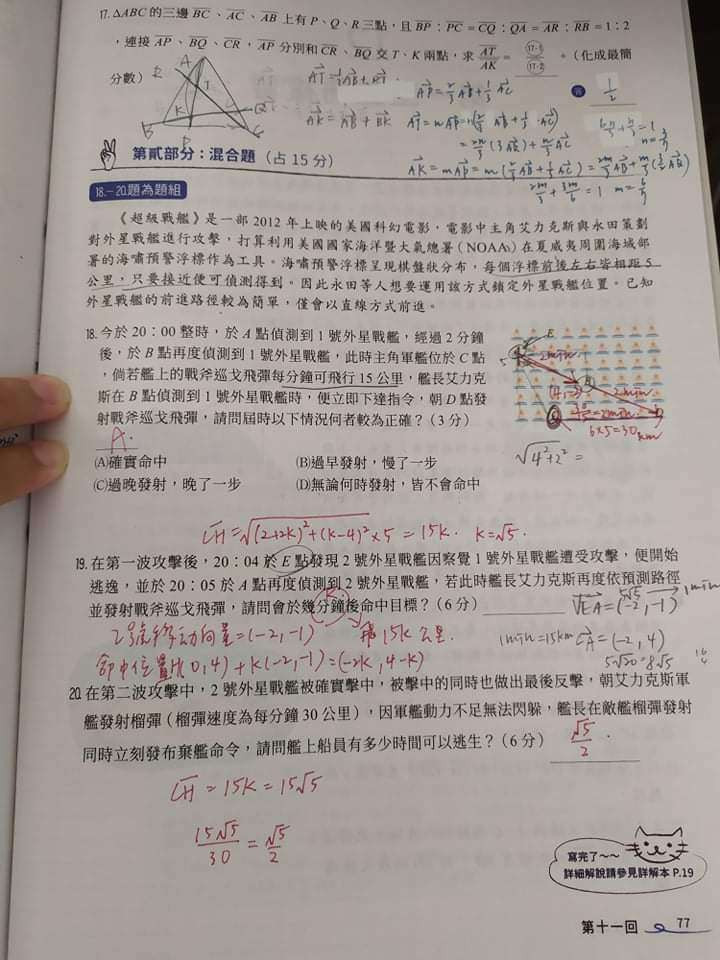 17. △ABC 的三邊 BC、AC、AB 上有 P、Q、R 三點，且 BP：PC = CQ：QA = AR：RB = 1：2
，連接 AP、BQ、CR，AP 分別和 CR、BQ 交 T、K 兩點，求 AT/AK = (17-1)/(17-2) 。（化成最簡
分數）
答 1/2
A
R
T
K
Q
B
P
C
AP = 2/3 AB + 1/3 AC
AK = AB + BK
第貳部分：混合題（占 15 分）
18.－20.題為題組
《超級戰艦》是一部 2012 年上映的美國科幻電影，電影中主角艾力克斯與永田策劃
對外星戰艦進行攻擊，打算利用美國國家海洋暨大氣總署（NOAA）在夏威夷周圍海域部
署的海嘯預警浮標作為工具。海嘯預警浮標呈現棋盤狀分布，每個浮標前後左右皆相距 5
公里，只要接近便可偵測得到。因此永田等人想要運用該方式鎖定外星戰艦位置。已知
外星戰艦的前進路徑較為簡單，僅會以直線方式前進。
18. 今於 20：00 整時，於 A 點偵測到 1 號外星戰艦，經過 2 分鐘
後，於 B 點再度偵測到 1 號外星戰艦，此時主角軍艦位於 C 點
，倘若艦上的戰斧巡弋飛彈每分鐘可飛行 15 公里，艦長艾力克
斯在 B 點偵測到 1 號外星戰艦時，便立即下達指令，朝 D 點發
射戰斧巡弋飛彈，請問屆時以下情況何者較為正確？（3 分）
A.
(A)確實命中
(B)過早發射，慢了一步
(C)過晚發射，晚了一步
(D)無論何時發射，皆不會命中
E
2min
2min
6×5=30km
√4²+2² =
CH = √(2+2K)²+(K-4)² ×5 = 15K. K=√5.
19. 在第一波攻擊後，20：04 於 E 點發現 2 號外星戰艦因察覺 1 號外星戰艦遭受攻擊，便開始
逃逸，並於 20：05 於 A 點再度偵測到 2 號外星戰艦，若此時艦長艾力克斯再度依預測路徑
並發射戰斧巡弋飛彈，請問會於幾分鐘後命中目標？（6 分）
K
5√5
1min
VEA = (-2,-1)
2號移動向量=(-2,-1)
15K 公里.
1min=15km CA = (-2,4)
5√20=8√5
命中位置H(0,4)+K(-2,-1)=(-2K,4-K)
20. 在第二波攻擊中，2 號外星戰艦被確實擊中，被擊中的同時也做出最後反擊，朝艾力克斯軍
艦發射榴彈（榴彈速度為每分鐘 30 公里），因軍艦動力不足無法閃躲，艦長在敵艦榴彈發射
同時立刻發布棄艦命令，請問艦上船員有多少時間可以逃生？（6 分） √5/2 .
CH = 15K = 15√5
15√5/30 = √5/2
寫完了～～
詳細解說請參見詳解本 P.19
第十一回 77